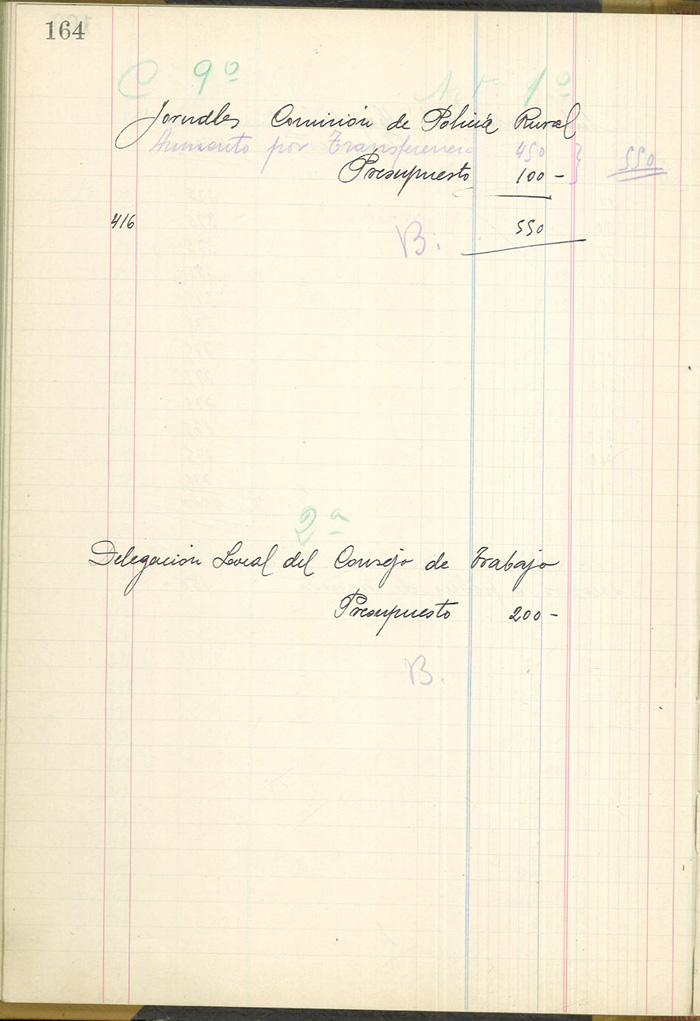 164
C 9º 1º
Jornales Comisión de Policía Rural
Aumento por Transferencia 450 } 550
Presupuesto 100 -
416 B. 550
2ª
Delegación Local del Consejo de Trabajo
Presupuesto 200 -
B.